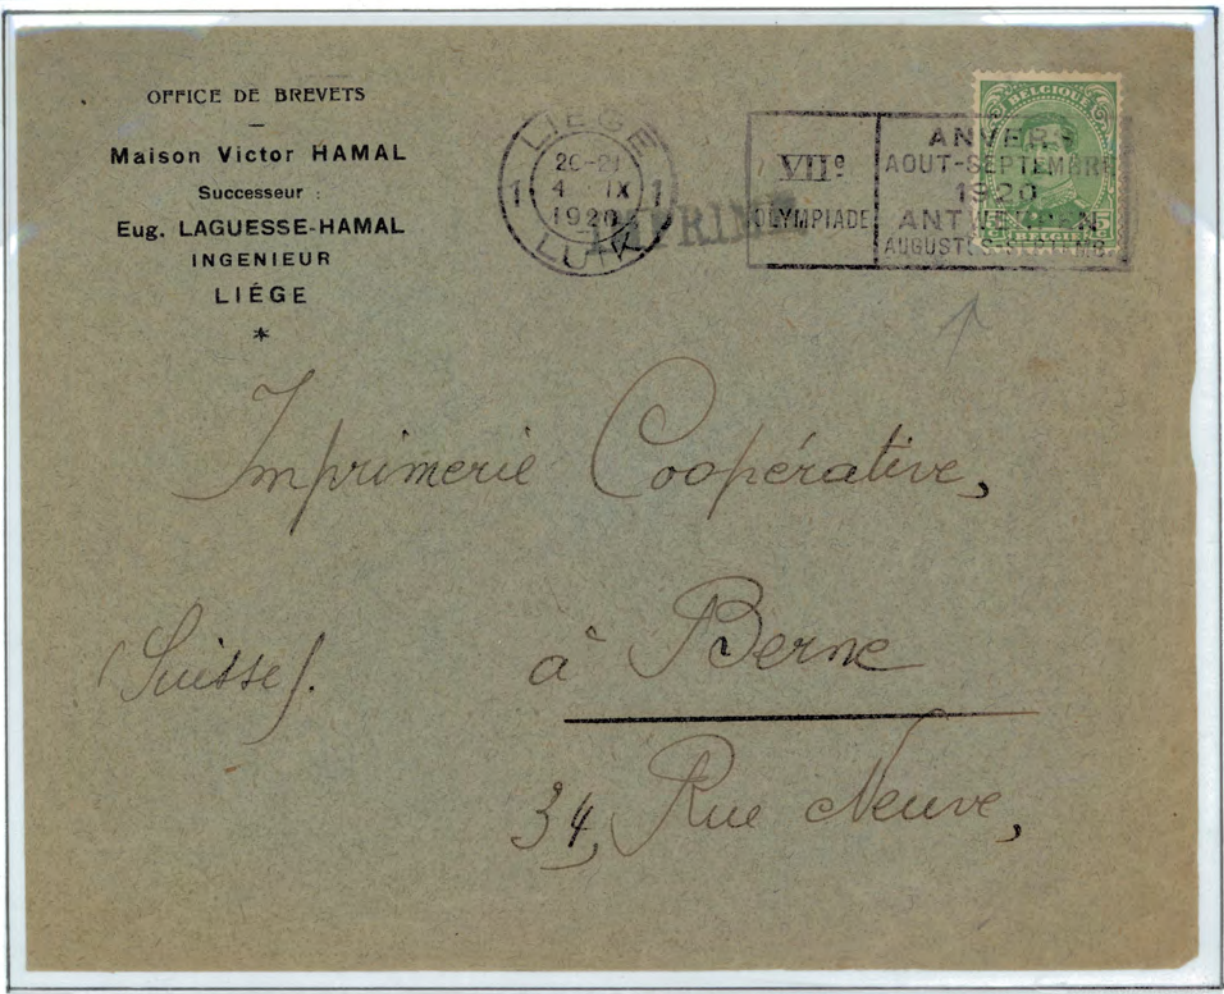 OFFICE DE BREVETS
Maison Victor HAMAL
Successeur :
Eug. LAGUESSE-HAMAL
INGENIEUR
LIÉGE
*
LIEGE
20-21
1 4 IX 1
1920
LUIK
IMPRIMÉ
VIIe
OLYMPIADE
ANVERS
AOUT-SEPTEMBRE
1920
ANTWERPEN
AUGUSTUS-SEPTEMB.
BELGIQUE
5
BELGIË
Imprimerie Coopérative,
à Berne
(Suisse).
34, Rue Neuve,